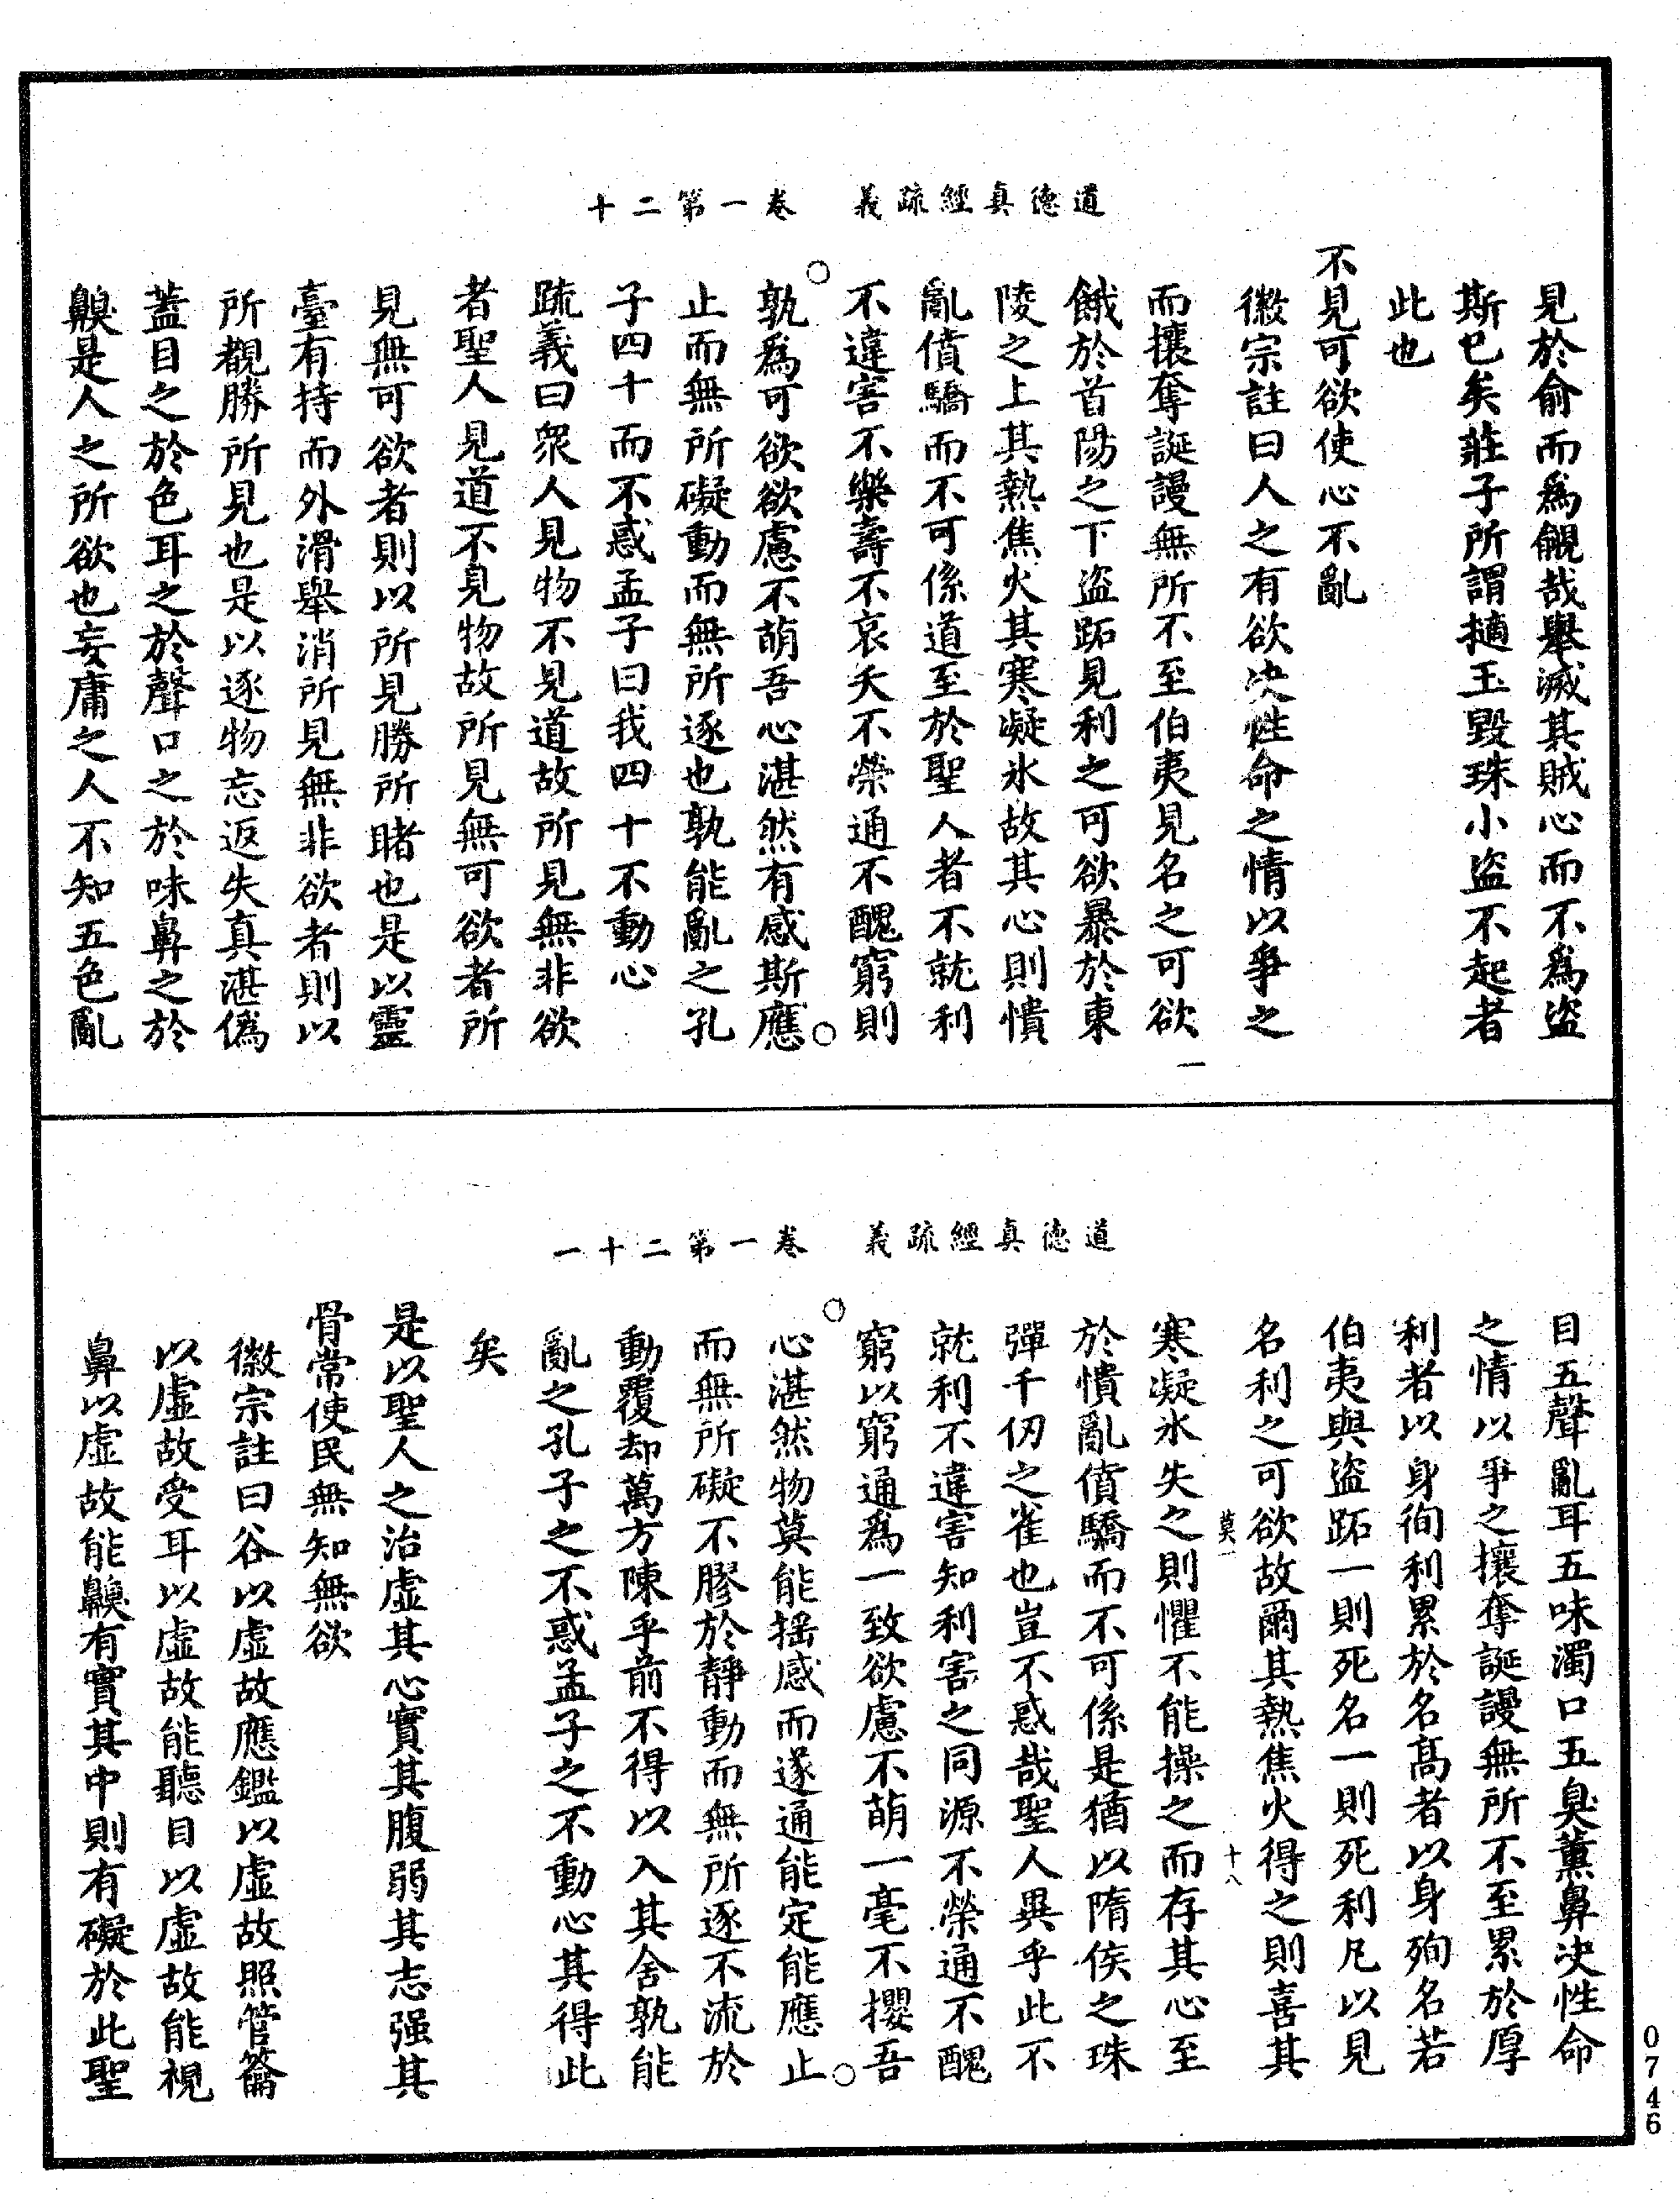 道德真經疏義　卷一第二十
見於俞而為覦哉舉滅其賊心而不為盜
斯已矣莊子所謂擿玉毀珠小盜不起者
此也
不見可欲使心不亂
徽宗註曰人之有欲决性命之情以爭之
而攘奪誕謾無所不至伯夷見名之可欲
餓於首陽之下盜跖見利之可欲暴於東
陵之上其熱焦火其寒凝氷故其心則憒
亂僨驕而不可係道至於聖人者不就利
不違害不樂壽不哀夭不榮通不醜窮則
孰為可欲欲慮不萌吾心湛然有感斯應
止而無所礙動而無所逐也孰能亂之孔
子四十而不惑孟子曰我四十不動心
疏義曰衆人見物不見道故所見無非欲
者聖人見道不見物故所見無可欲者所
見無可欲者則以所見勝所睹也是以靈
臺有持而外滑舉消所見無非欲者則以
所覩勝所見也是以逐物忘返失真湛偽
蓋目之於色耳之於聲口之於味鼻之於
齅是人之所欲也妄庸之人不知五色亂
道德真經疏義　卷一第二十一
目五聲亂耳五味濁口五臭薰鼻决性命
之情以爭之攘奪誕謾無所不至累於厚
利者以身徇利累於名高者以身殉名若
伯夷與盜跖一則死名一則死利凡以見
名利之可欲故爾其熱焦火得之則喜其
莫一　十八
寒凝氷失之則懼不能操之而存其心至
於憒亂僨驕而不可係是猶以隋侯之珠
彈千仞之雀也豈不惑哉聖人異乎此不
就利不違害知利害之同源不榮通不醜
窮以窮通為一致欲慮不萌一毫不攖吾
心湛然物莫能搖感而遂通能定能應止
而無所礙不膠於靜動而無所逐不流於
動覆却萬方陳乎前不得以入其舍孰能
亂之孔子之不惑孟子之不動心其得此
矣
是以聖人之治虛其心實其腹弱其志强其
骨常使民無知無欲
徽宗註曰谷以虛故應鑑以虛故照管籥
以虛故受耳以虛故能聽目以虛故能視
鼻以虛故能齅有實其中則有礙於此聖
0746